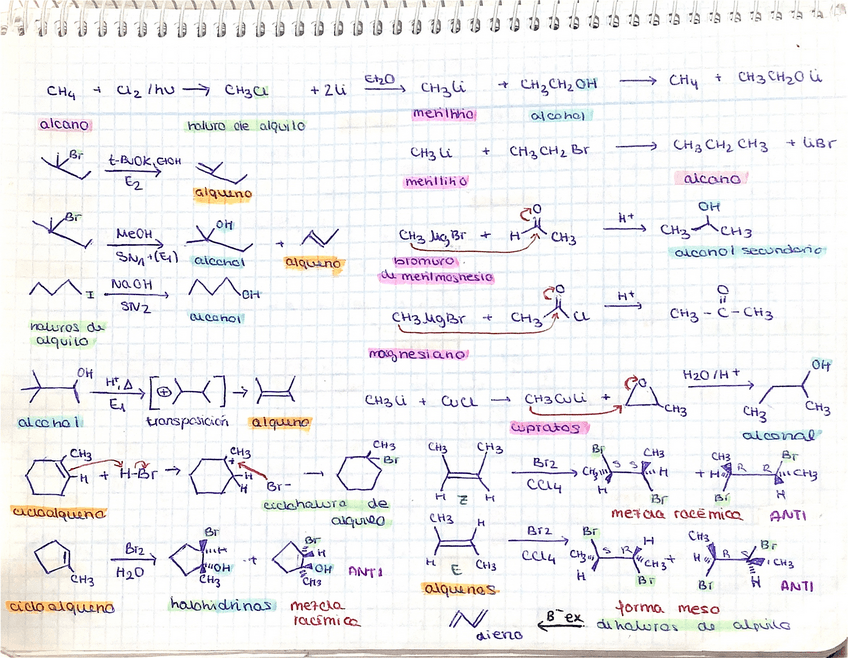 CH₄ + Cl₂ /hν → CH₃Cl + 2Li Et₂O → CH₃Li + CH₃CH₂OH → CH₄ + CH₃CH₂OLi
alcano haluro de alquilo metillitio alcohol
CH₃Li + CH₃CH₂Br → CH₃CH₂CH₃ + LiBr
metillitio alcano
Br t-BuOK, EtOH E₂
alqueno
Br MeOH SN₁+(E₁) OH +
alcohol alqueno
CH₃MgBr + H O CH₃ H⁺ → OH CH₃ CH₃
bromuro de metilmagnesio alcohol secundario
I NaOH SN2 OH
haluros de alquilo alcohol
CH₃MgBr + CH₃ O Cl H⁺ → O CH₃ - C - CH₃
magnesiano
OH H⁺, Δ E₁ [⊕] →
alcohol transposición alqueno
CH₃Li + CuCl → CH₃CuLi + O CH₃ H₂O/H⁺ → OH CH₃ CH₃
cupratos alcohol
CH₃ H + H-Br → CH₃ + H H Br⁻ → CH₃ Br
cicloalqueno ciclohalura de alquilo
CH₃ CH₃ H Z H Br₂ CCl₄ → Br CH₃ S S CH₃ H H Br + CH₃ H R R Br CH₃ Br H
mezcla racémica ANTI
CH₃ Br₂ H₂O → Br H OH CH₃ + Br H OH CH₃ ANTI
cicloalqueno halohidrinas mezcla racémica
CH₃ H H E CH₃ Br₂ CCl₄ → Br CH₃ S R H CH₃ H Br + CH₃ H R S Br CH₃ Br H ANTI
alquenos forma meso
dieno B⁻ ex ← dihaluros de alquilo